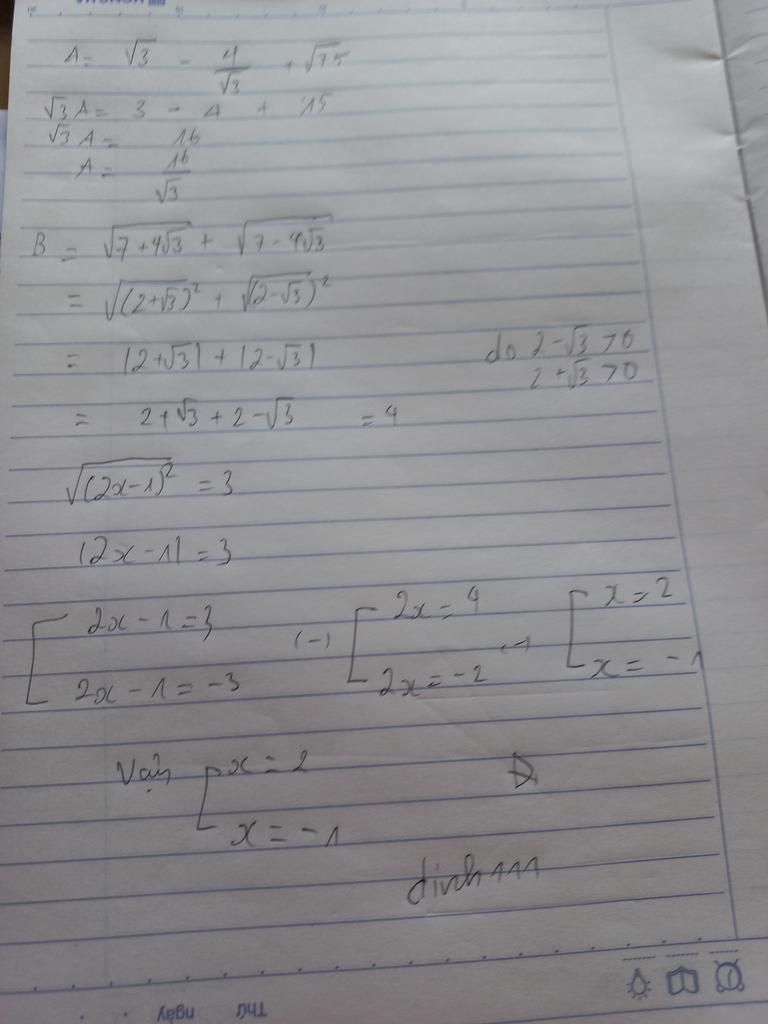 A = √3 - 4/√3 + √75
√3 A = 3 - 4 + 15
√3 A = 16
A = 16/√3
B = √(7+4√3) + √(7-4√3)
= √(2+√3)² + √(2-√3)²
= |2+√3| + |2-√3| do 2-√3 >0
2+√3 >0
= 2+√3 + 2-√3 = 4
√(2x-1)² = 3
|2x-1| = 3
[ 2x-1 = 3 (-) [ 2x = 4 (-) [ x = 2
2x-1 = -3 2x = -2 x = -1
Vậy [ x = 2
x = -1
dinh111
Thứ ngày